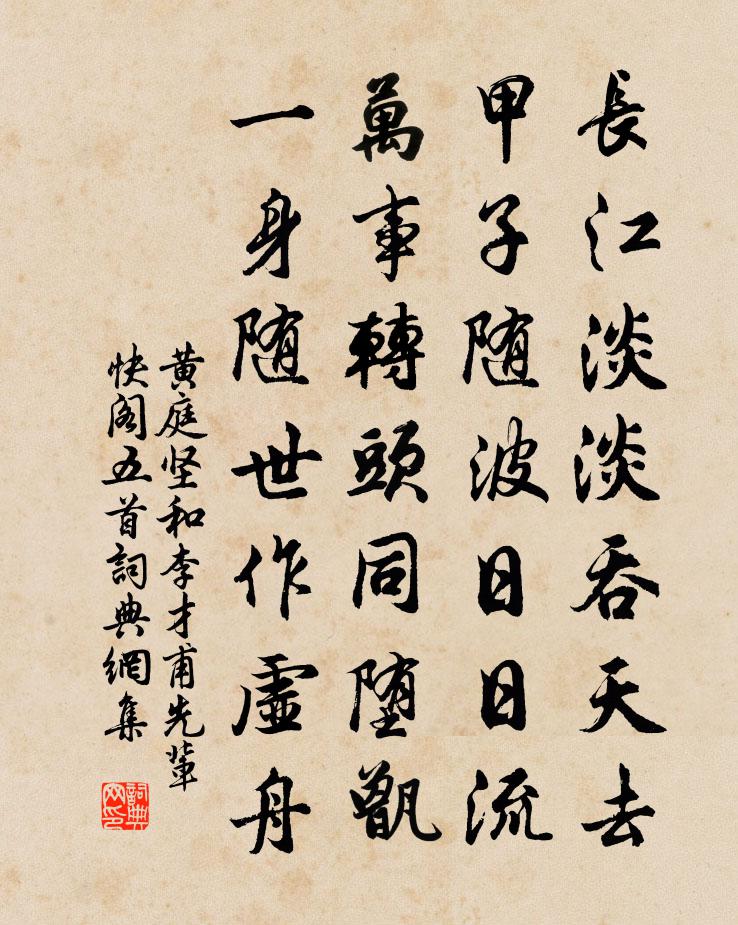 長江淡淡吞天去
甲子随波日日流
萬事轉頭同墮甑
一身随世作虛舟
黄庭坚和李才甫先輩
快阁五首詞典網集
詞典
网印